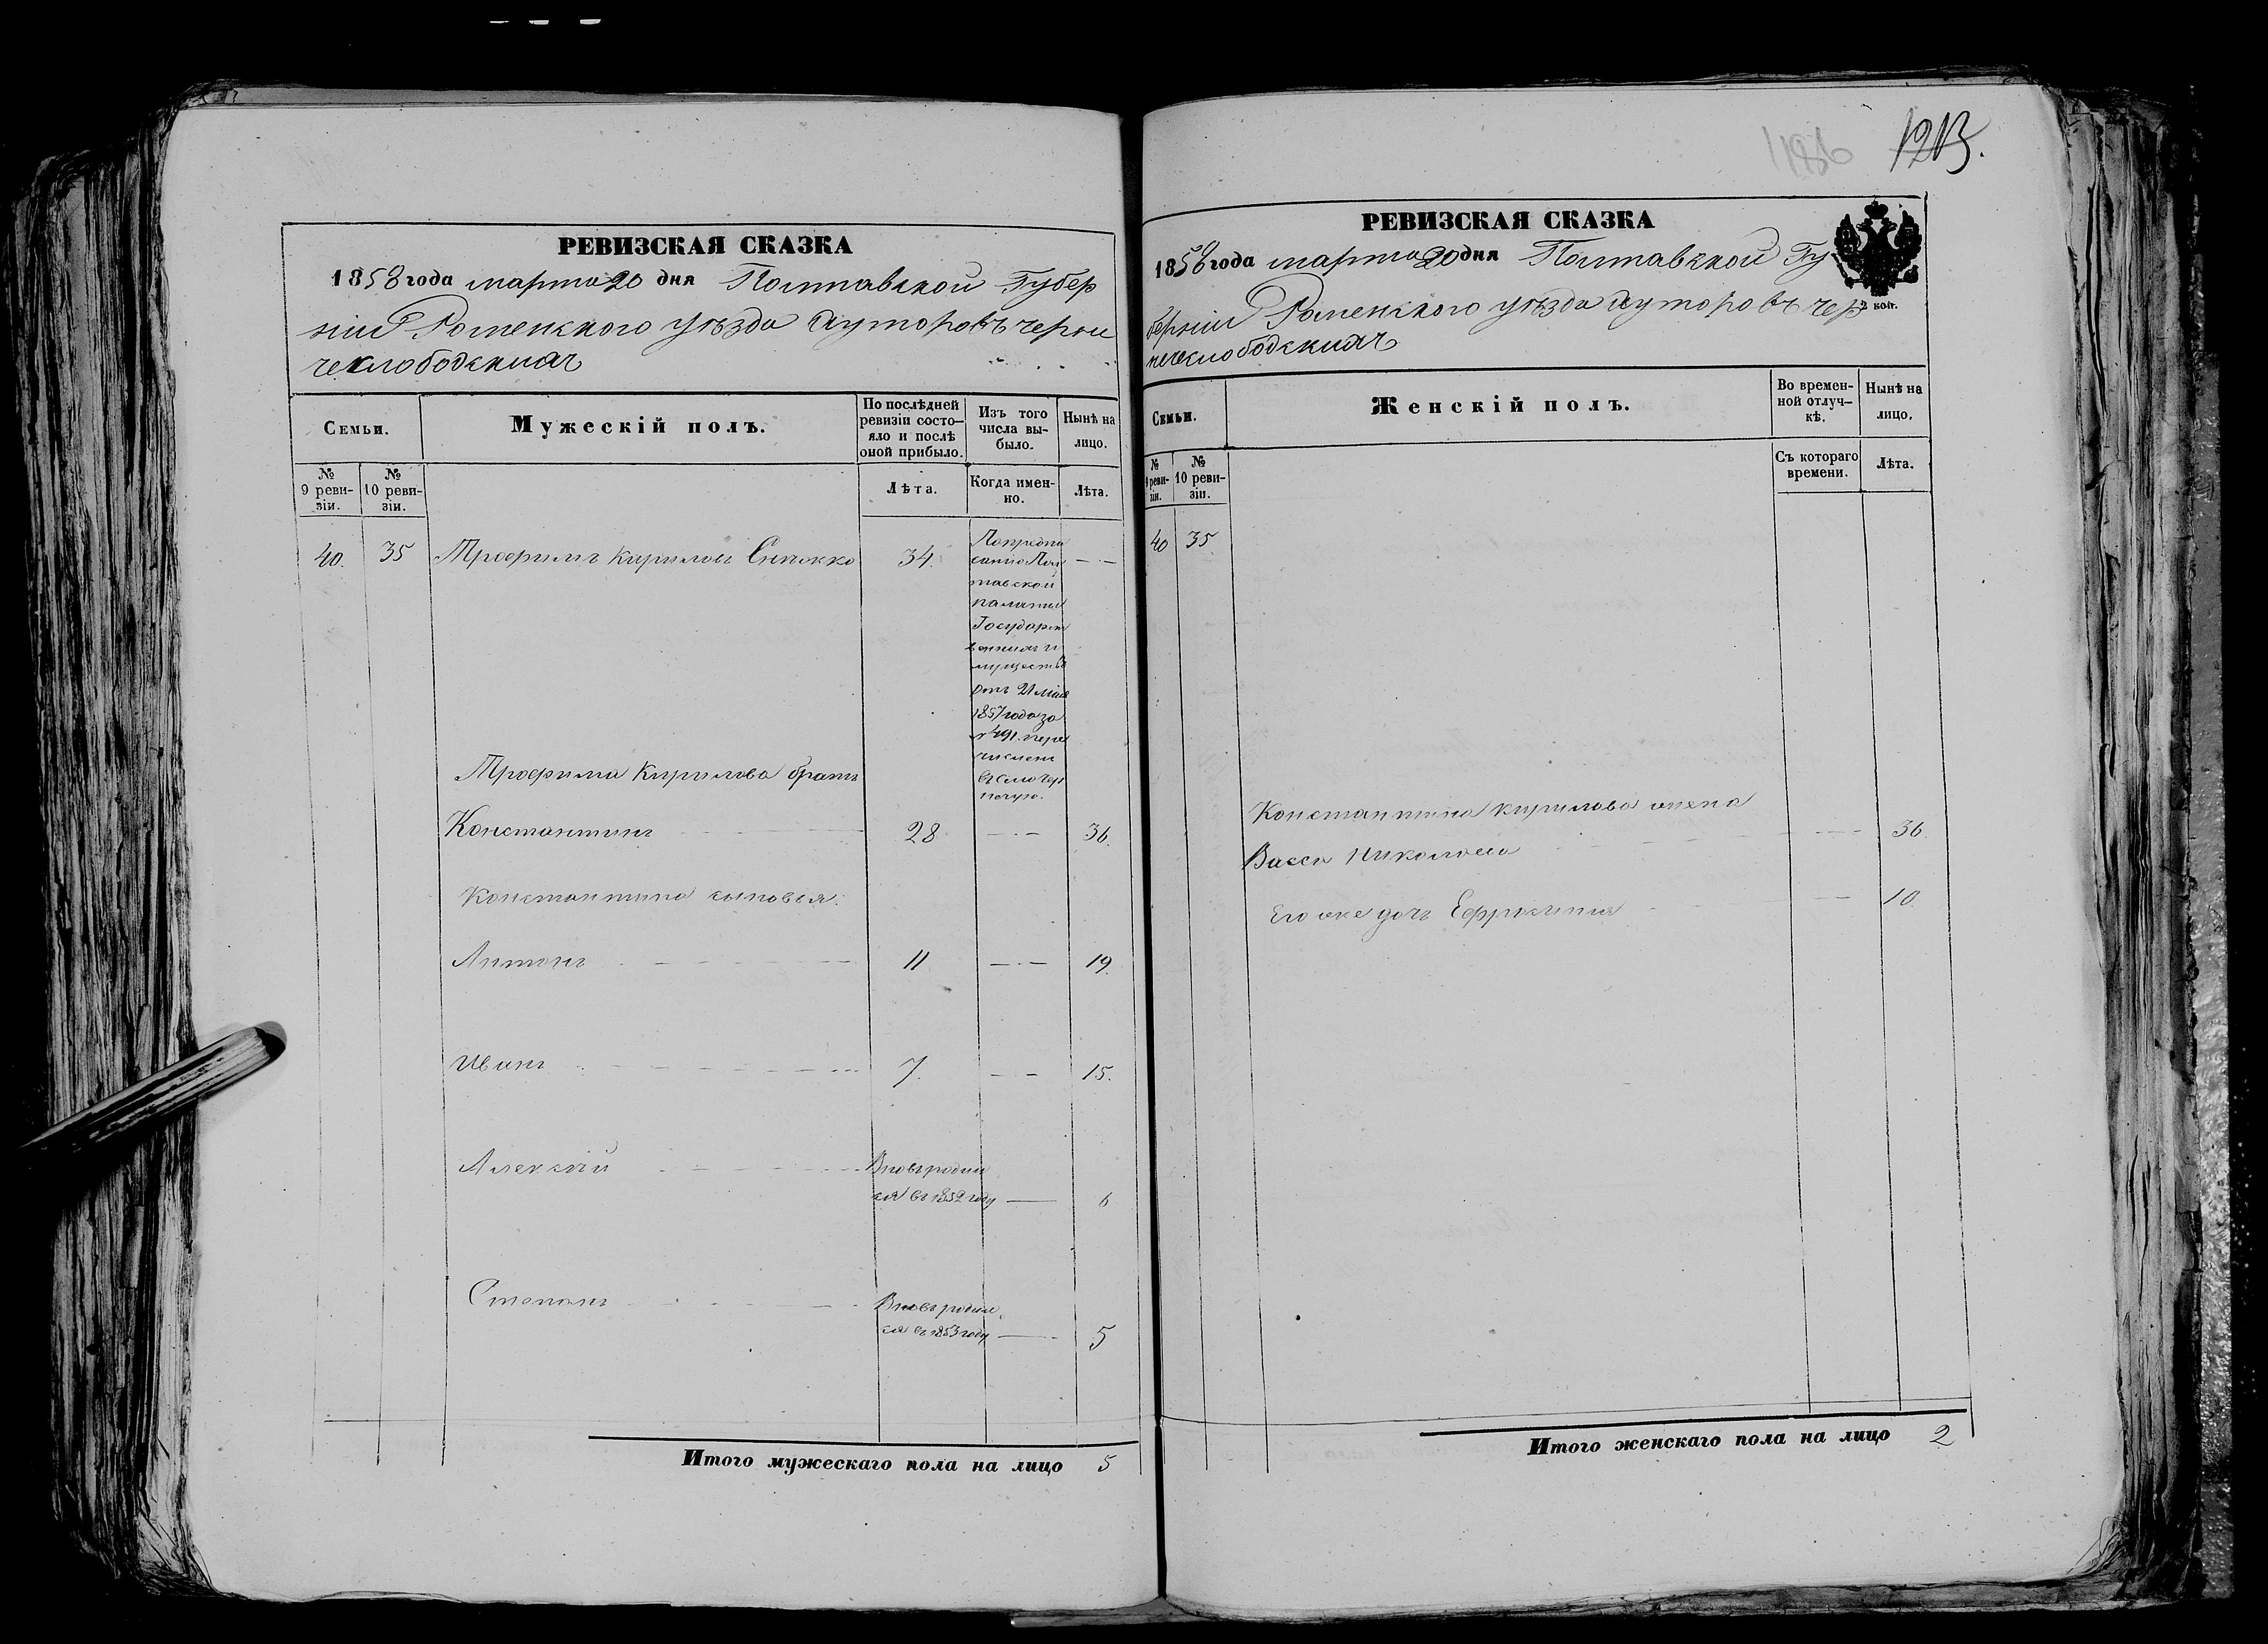 1213.
1186
РЕВИЗСКАЯ СКАЗКА
1858 года марта 20 дня Полтавской Губер
ніи Роменского уѣзда хуторовъ черни
чеслободскихъ
Семьи.
Мужескій полъ.
По послѣдней
ревизіи состо-
яло и послѣ
оной прибыло.
Изъ того
числа вы-
было.
Нынѣ на
лицо.
№
9 реви-
зіи.
№
10 реви-
зіи.
Лѣта.
Когда имен-
но.
Лѣта.
40. 35 Трофимъ Кириловъ 34.
Попредпи
санію Пол
тавской
палаты
Государст
венныхъ и
муществъ
отъ 21 мая
1857 года за
№ 491. пере
численъ
въ село Чер
нечую.
Трофима Кирилова братъ
Константинъ 28 36.
Константина сыновья.
Антонъ 11 19.
Иванъ 7. 15.
Алексѣй Вновь родил
ся въ 1852 году 6
Степанъ Вновь родил
ся въ 1853 году 5
Итого мужескаго пола на лицо 5
РЕВИЗСКАЯ СКАЗКА
1858 года марта 20 дня Полтавской Гу
берніи Роменского уѣзда хуторовъ чер
нечеслободскихъ
коп.
Семьи.
Женскій полъ.
Во времен-
ной отлуч-
кѣ.
Нынѣ на
лицо.
№
9 реви-
зіи.
№
10 реви-
зіи.
Съ котораго
времени.
Лѣта.
40 35
Константина Кирилова жена
Васса Николаева 36.
Его же дочь Ефросинія 10.
Итого женскаго пола на лицо 2